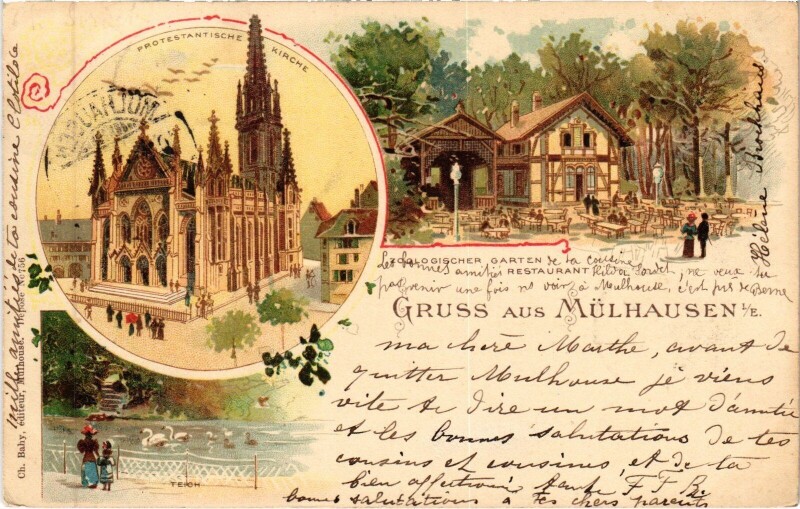 PROTESTANTISCHE KIRCHE
ZOOLOGISCHER GARTEN
RESTAURANT
GRUSS AUS MÜLHAUSEN I/E.
TEICH
Ch. Bahy, éditeur, Mulhouse.
mille amitiés de ta cousine Clotilde
Hélène
Les bonnes amitiés de ta cousine
Hilda ne veux tu
pas venir une fois voir à Mulhouse, c'est pis de Berne
ma chère Marthe, avant de
quitter Mulhouse je viens
vite te dire un mot d'amitié
et les bonnes salutations de tes
cousins et cousines, et de ta
bien affectionnée tante F F B.
bonnes salutations à tes chers parents